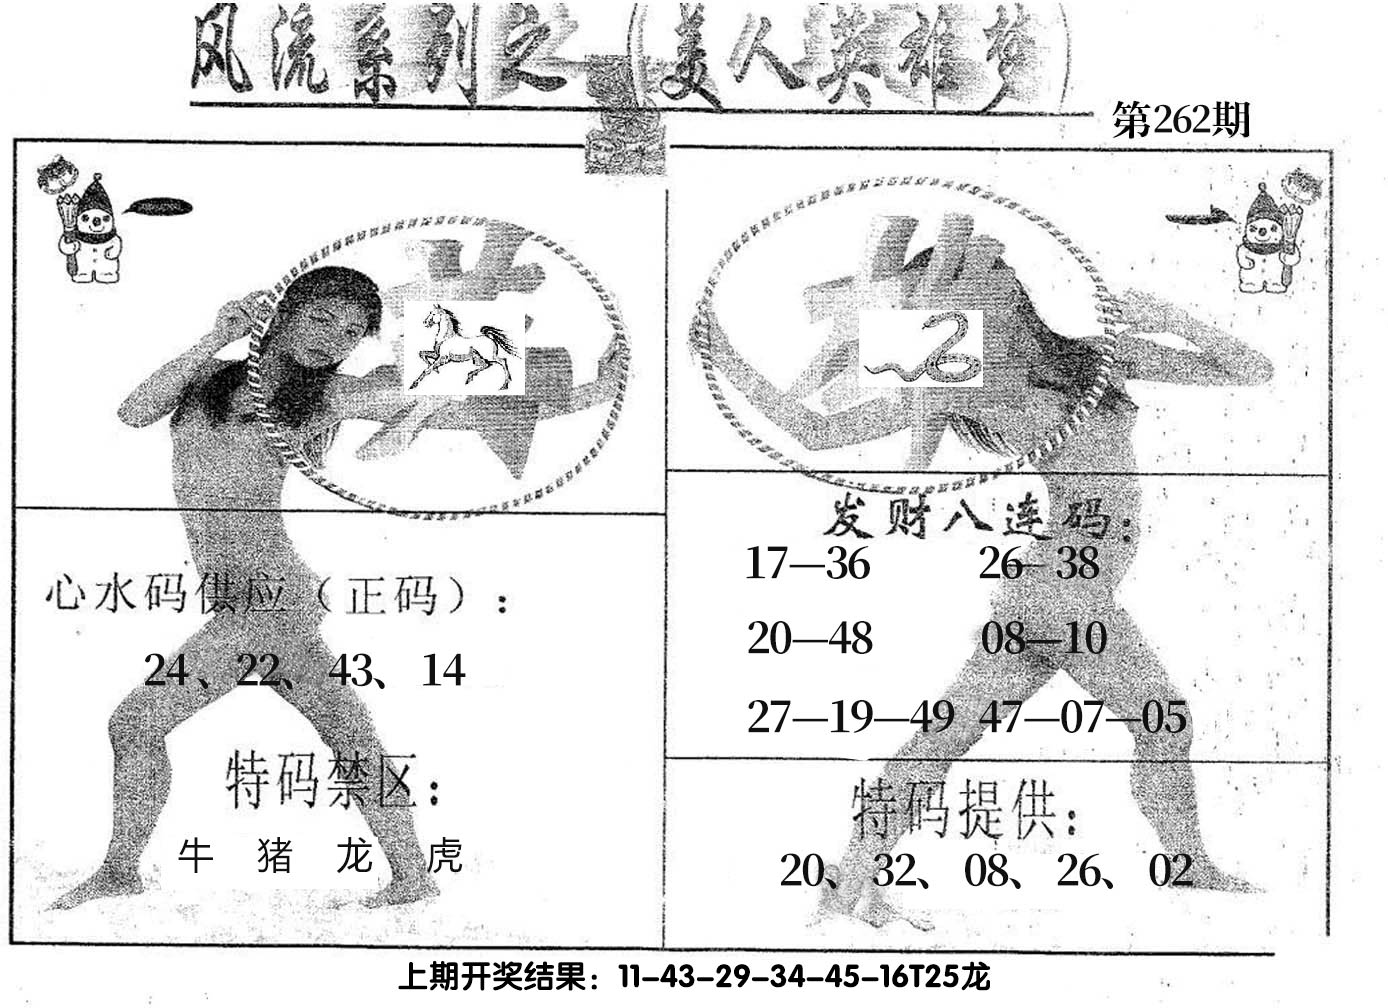 风流系列之 美人英雄梦
第262期
心水码供应（正码）：
24、22、43、14
特码禁区：
牛 猪 龙 虎
发财八连码：
17—36 26—38
20—48 08—10
27—19—49 47—07—05
特码提供：
20、32、08、26、02
上期开奖结果：11-43-29-34-45-16T25龙